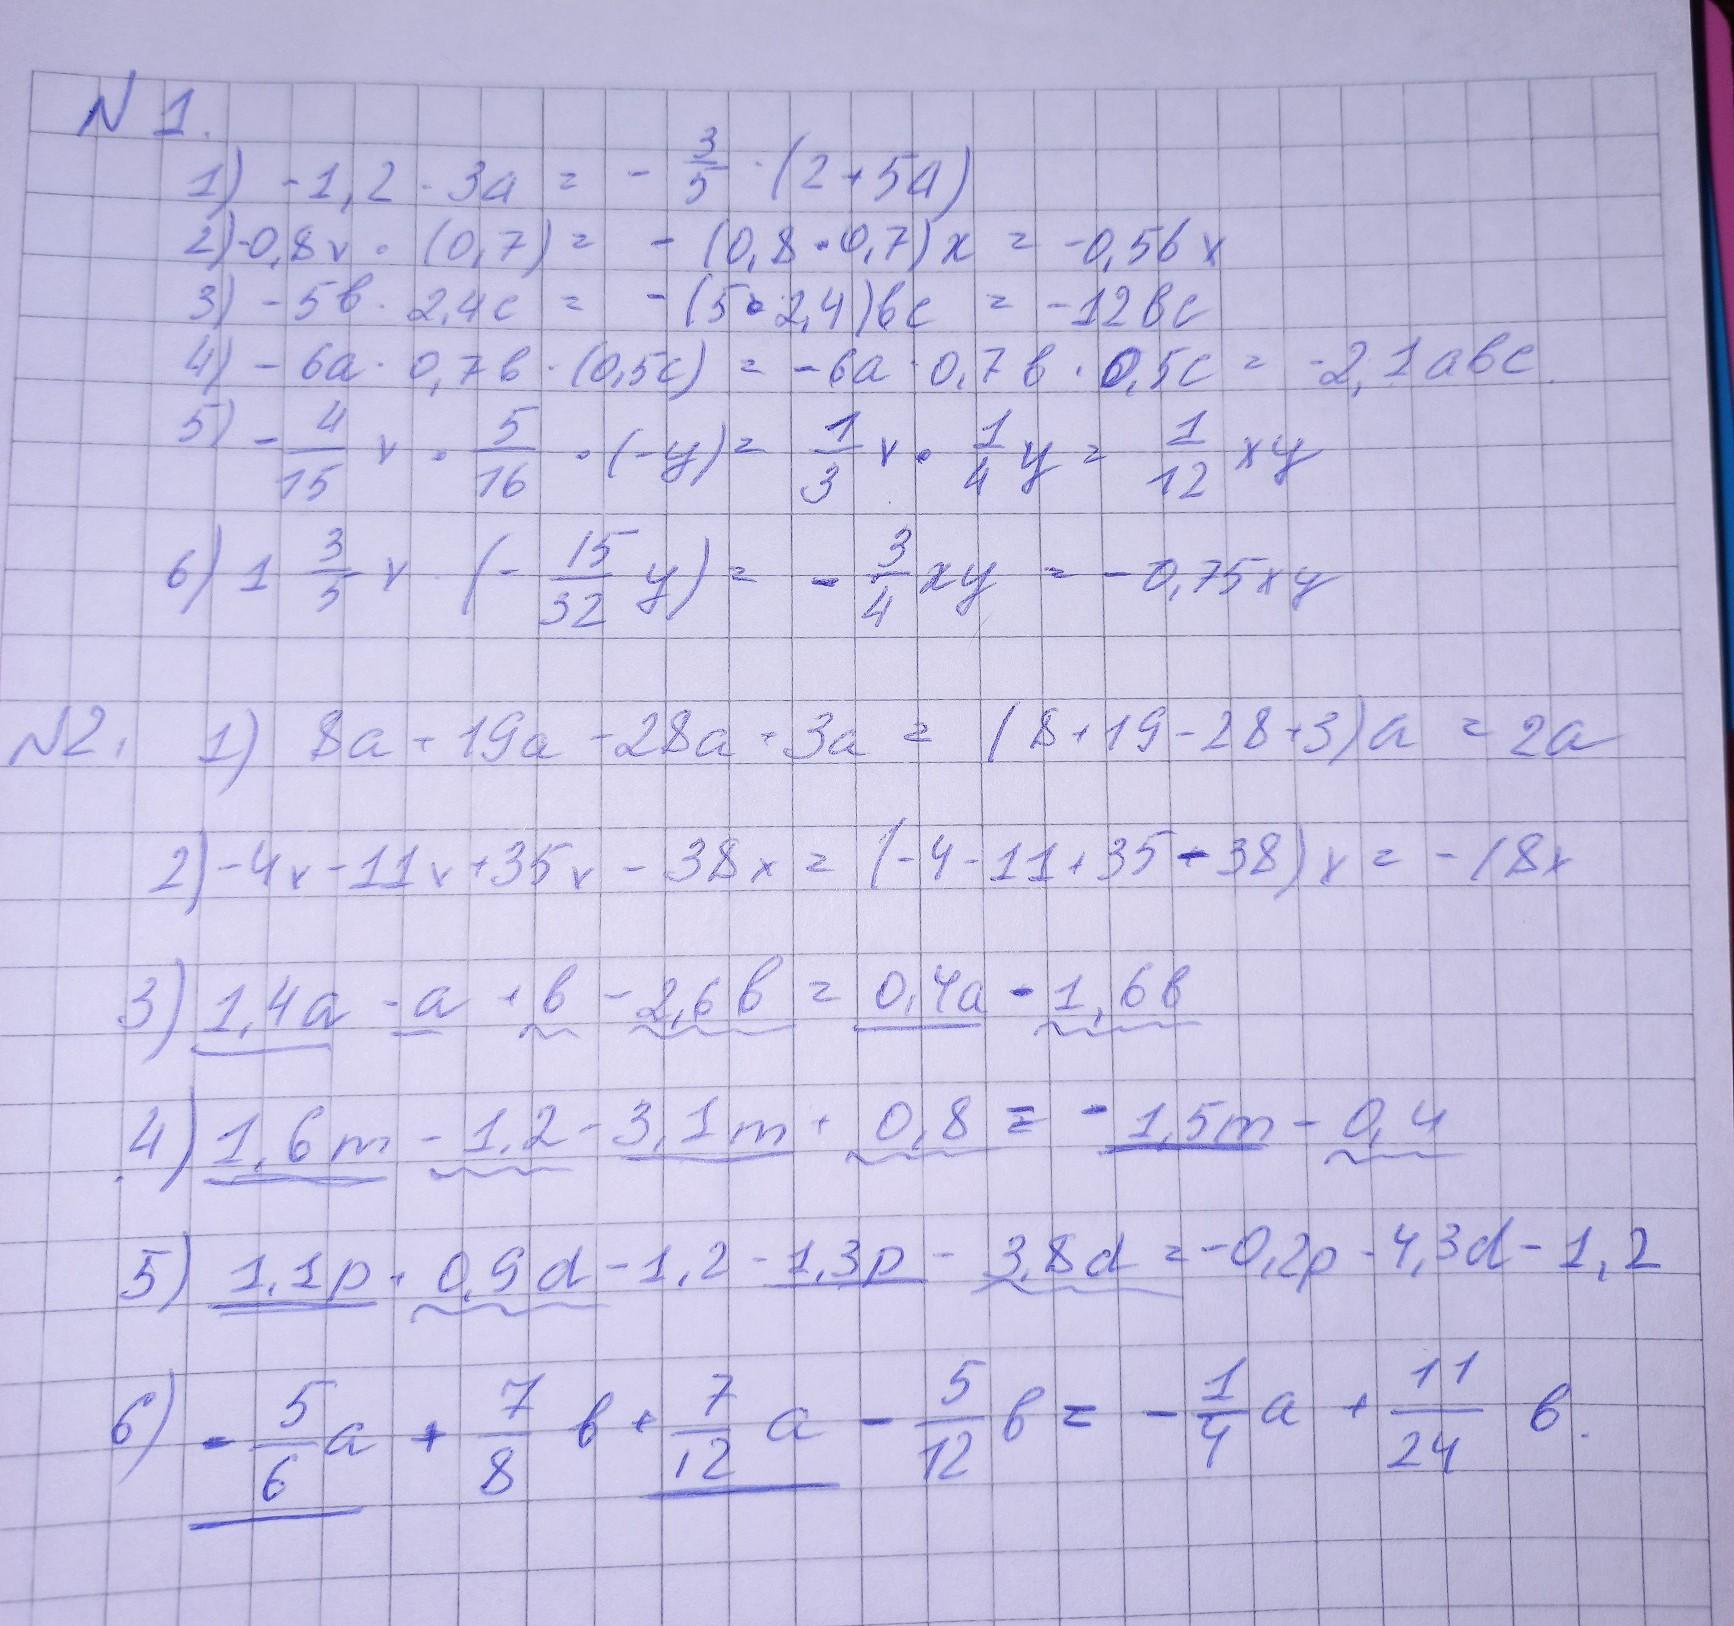 N 1.
1) -1,2 - 3a = - 3/5 · (2+5a)
2) -0,8x · (0,7) = - (0,8 · 0,7)x = -0,56x
3) -5b · 2,4c = -(5 · 2,4)bc = -12bc
4) -6a · 0,7b · (0,5c) = -6a · 0,7b · 0,5c = -2,1abc.
5) - 4/15 x · 5/16 · (-y) = 1/3 x · 1/4 y = 1/12 xy
6) 1 3/5 x · (- 15/32 y) = - 3/4 xy = -0,75xy
N2. 1) 8a + 19a - 28a + 3a = (8+19-28+3)a = 2a
2) -4x - 11x + 35x - 38x = (-4-11+35-38)x = -18x
3) 1,4a - a + b - 2,6b = 0,4a - 1,6b
4) 1,6m - 1,2 - 3,1m + 0,8 = -1,5m - 0,4
5) 1,1p + 0,9d - 1,2 - 1,3p - 3,8d = -0,2p - 4,3d - 1,2
6) - 5/6 a + 7/8 b + 7/12 a - 5/12 b = - 1/4 a + 11/24 b.